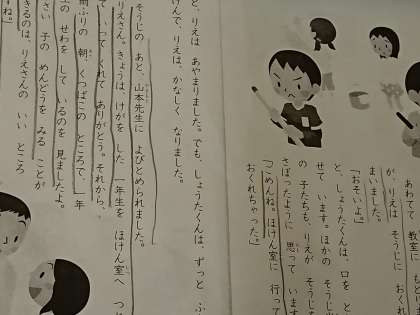 あわて　教室に　もど
が、りえは　そうじに　おくれ
まいました。
「おそいよ。」
と、しょうたくんは、口を　と
せて　います。ほかの　そうじ
の　子たちも、りえが　そうじを
さぼったように　思って　います
「ごめんね。ほけん室に　行って
おくれちゃった。」
と、りえは　あやまりました。でも、しょうたくんは、ずっと　ふ
けんで、りえは、かなしく　なりました。
そうじの　あと、山本先生に　よびとめられました。
りえさん。きょうは、けがを　した　一年生を　ほけん室へ　つれ
ていって　くれて　ありがとう。それから、
ふりの　朝、くつばこの　ところで、一年
の　せわを　して　いるのを　見ましたよ。
さい　子の　めんどうを　みる　ことが
きるのは、りえさんの　いい　ところ
すね。」